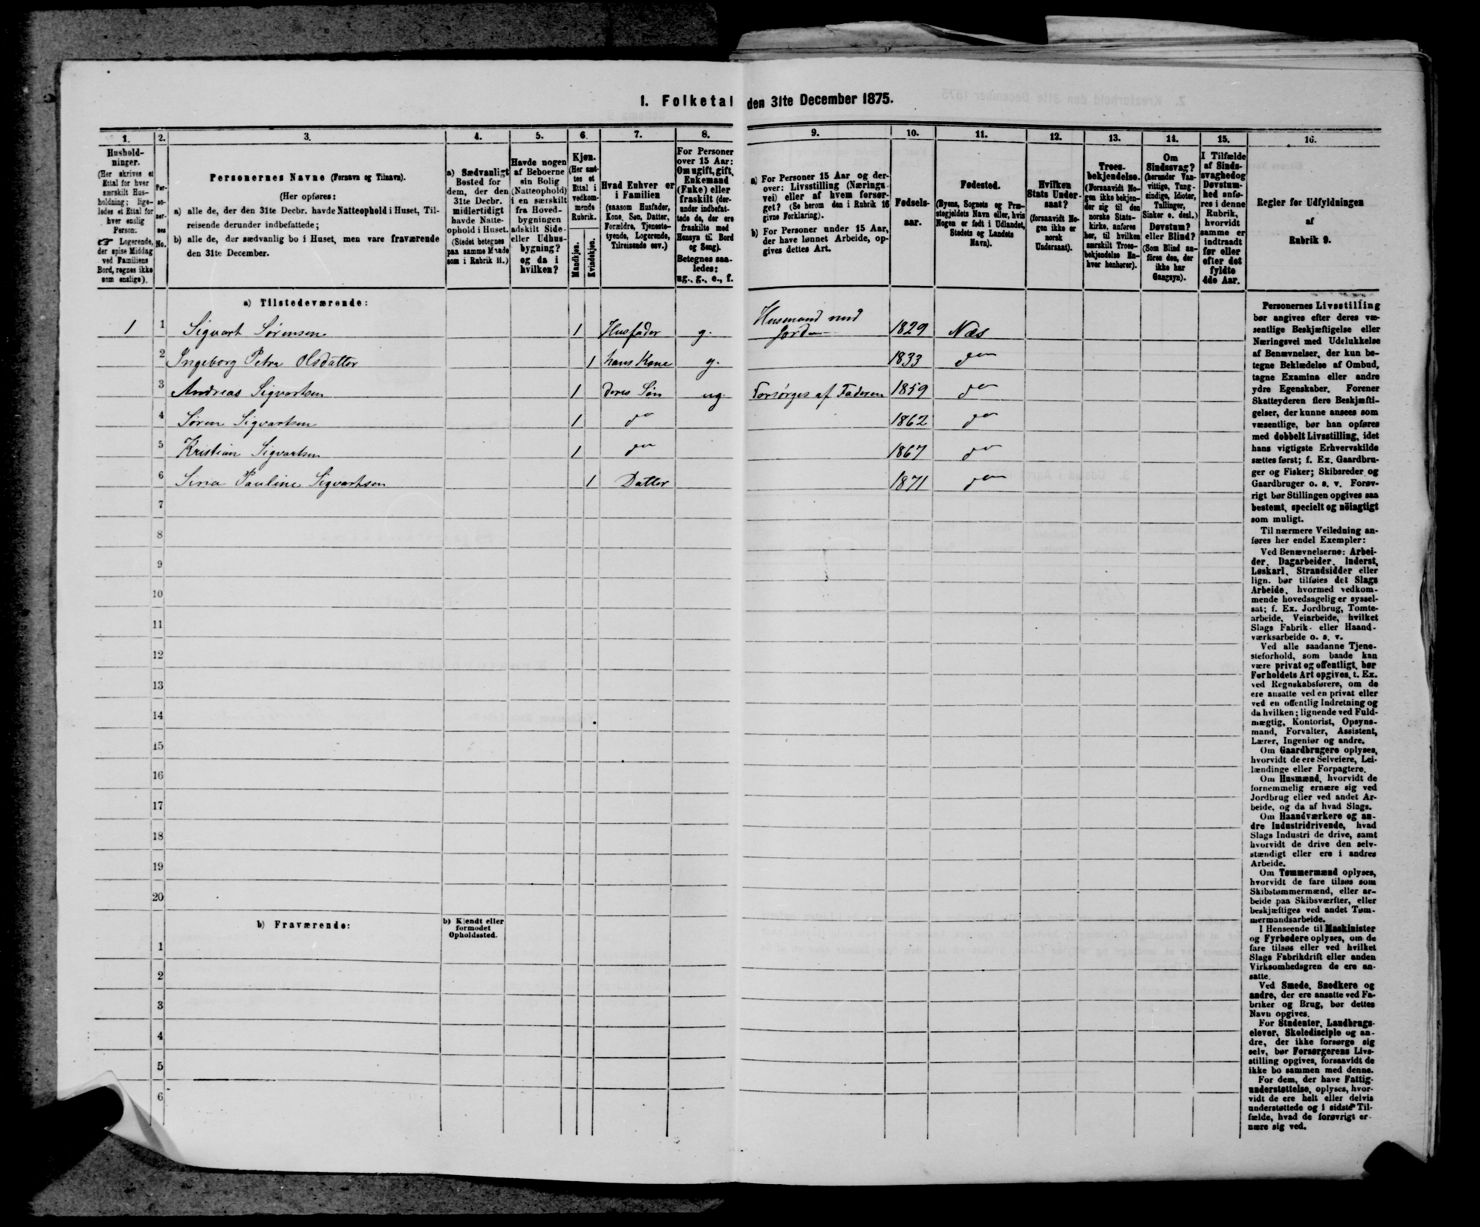 1. Folketal den 31te December 1875.
1.
2.
3.
4.
5.
6.
7.
8.
9.
10.
11.
12.
13.
14.
15.
16.
Hushold-
ninger.
(Her skrives et
Ettal for hver
særskilt Hus-
holdning; lige-
ledes et Ettal for
hver enslig
Person.
☞ Logerende,
der spise Middag
ved Familiens
Bord, regnes ikke
som enslige).
Per-
so-
ner-
nes
No.
Personernes Navne (Fornavn og Tilnavn).
(Her opføres:
a) alle de, der den 31te Decbr. havde Natteophold i Huset, Til-
reisende derunder indbefattede;
b) alle de, der sædvanlig bo i Huset, men vare fraværende
den 31te December.
a) Sædvanligt
Bosted for
dem, der den
31te Decbr.
midlertidigt
havde Natte-
ophold i Huset.
(Stedet betegnes
paa samme Maade
som i Rubrik 11.)
Havde nogen
af Beboerne
sin Bolig
(Natteophold)
i en særskilt
fra Hoved-
bygningen
adskilt Side-
eller Udhus-
bygning?
og da i
hvilken?
Kjøn.
(Her sæt-
tes et
Ettal i
vedkom-
mende
Rubrik.
Mandkjøn.
Kvindekjøn.
Hvad Enhver er
i Familien
(saasom Husfader,
Kone, Søn, Datter,
Forældre, Tjeneste-
tyende, Logerende,
Tilreisende osv.)
For Personer
over 15 Aar:
Om ugift, gift,
Enkemand
(Enke) eller
fraskilt (der-
under indbefat-
tede de, der ere
fraskilte med
Hensyn til Bord
og Seng).
Betegnes saa-
ledes:
ug., g., e., f.
a) For Personer 15 Aar og der-
over: Livsstilling (Nærings-
vei) eller af hvem forsør-
get? (Se herom den i Rubrik 16
givne Forklaring).
b) For Personer under 15 Aar,
der have lønnet Arbeide, op-
gives dettes Art.
Fødsels-
aar.
Fødested.
(Byens, Sognets og Præ-
stegjeldets Navn eller, hvis
Nogen er født i Udlandet,
Stedets og Landets
Navn).
Hvilken
Stats Under-
saat?
(forsaavidt No-
gen ikke er
norsk
Undersaat).
Troes-
bekjendelse.
(Forsaavidt No-
gen ikke bekjen-
der sig til den
norske Stats-
kirke, anføres
her, til hvilken
særskilt Troes-
bekjendelse En-
hver henhører).
Om
Sindssvag?
(herunder Van-
vittige, Tung-
sindige, Idioter,
Tullinger,
Sinker o. desl.)
Døvstum?
eller Blind?
(Som Blind an-
føres den, der
ikke har
Gangsyn).
I Tilfælde
af Sinds-
svaghed og
Døvstum-
hed anfø-
res i denne
Rubrik,
hvorvidt
samme er
indtraadt
før eller
efter det
fyldte
4de Aar.
Regler for Udfyldningen
af
Rubrik 9.
a) Tilstedeværende:
1 1 Sigvart Sørensen 1 Husfader g. Husmand med Jord 1829 Næs
2 Ingeborg Petra Olsdatter 1 hans Kone g. 1833 do
3 Andreas Sigvartsen 1 Deres Søn ug. Forsørges af Faderen 1859 do
4 Søren Sigvartsen 1 do 1862 do
5 Kristian Sigvartsen 1 do 1867 do
6 Sina Pauline Sigvartsen 1 Datter 1871 do
7
8
9
10
11
12
13
14
15
16
17
18
19
20
b) Fraværende:
b) Kjendt eller
formodet
Opholdssted.
1
2
3
4
5
6
Personernes Livsstilling
bør angives efter deres væ-
sentlige Beskjæftigelse eller
Næringsvei med Udelukkelse
af Benævnelser, der kun be-
tegne Beklædelse af Ombud,
tagne Examina eller andre
ydre Egenskaber. Forener
Skatteyderen flere Beskjæfti-
gelser, der kunne ansees som
væsentlige, bør han opføres
med dobbelt Livsstilling, idet
hans vigtigste Erhvervskilde
sættes først; f. Ex. Gaardbru-
ger og Fisker; Skibsreder og
Gaardbruger o. s. v. Forøv-
rigt bør Stillingen opgives saa
bestemt, specielt og nøiagtigt
som muligt.
Til nærmere Veiledning an-
føres her endel Exempler:
Ved Benævnelserne: Arbei-
der, Dagarbeider, Inderst,
Løskarl, Strandsidder eller
lign. bør tilføies det Slags
Arbeide, hvormed vedkom-
mende hovedsagelig er syssel-
sat; f. Ex. Jordbrug, Tomte-
arbeide, Veiarbeide, hvilket
Slags Fabrik- eller Haand-
værksarbeide o. s. v.
Ved alle saadanne Tjene-
steforhold, som baade kan
være privat og offentligt, bør
Forholdets Art opgives, t. Ex.
ved Regnskabsførere, om de
ere ansatte ved en privat eller
ved en offentlig Indretning og
da hvilken; lignende ved Fuld-
mægtig, Kontorist, Opsyns-
mand, Forvalter, Assistent,
Lærer, Ingeniør og andre.
Om Gaardbrugere oplyses,
hvorvidt de ere Selveiere, Lei-
lændinge eller Forpagtere.
Om Husmænd, hvorvidt de
fornemmelig ernære sig ved
Jordbrug eller ved andet Ar-
beide, og da af hvad Slags.
Om Haandværkere og an-
dre Industridrivende, hvad
Slags Industri de drive, samt
hvorvidt de drive den selv-
stændigt eller ere i andres
Arbeide.
Om Tømmermænd oplyses,
hvorvidt de fare tilsøs som
Skibstømmermænd, eller ar-
beide paa Skibsværfter, eller
beskjæftiges ved andet Tøm-
mermandsarbeide.
I Henseende til Maskinister
og Fyrbødere oplyses, om de
fare tilsøs eller ved hvilket
Slags Fabrikdrift eller anden
Virksomhedsgren de ere an-
satte.
Ved Smede, Snedkere og
andre, der ere ansatte ved Fa-
briker og Brug, bør dettes
Navn opgives.
For Studenter, Landbrugs-
elever, Skoledisciple og an-
dre, der ikke forsørge sig
selv, bør Forsørgerens Livs-
stilling opgives, forsaavidt de
ikke bo sammen med denne.
For dem, der have Fattig-
understøttelse, oplyses, hvor-
vidt de ere helt eller delvis
understøttede og i sidste Til-
fælde, hvad de forøvrigt er-
nære sig ved.